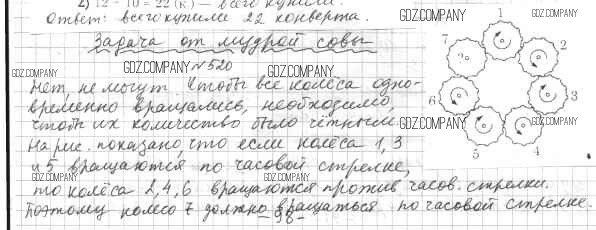 2) 12 + 10 = 22 (к) – всего купили.
Ответ: всего купили 22 конверта.
GDZ.COMPANY
GDZ.COMPANY
Задача от мудрой совы
GDZ.COMPANY
GDZ.COMPANY
GDZ.COMPANY
№520
Нет, не могут. Чтобы все колёса одно-
временно вращались, необходимо,
GDZ.COMPANY
GDZ.COMPANY
чтобы их количество было чётным.
GDZ.COMPANY
На рис. показано, что если колёса 1, 3
и 5 вращаются по часовой стрелке,
GDZ.COMPANY
GDZ.COMPANY
то колёса 2, 4, 6 вращаются против часов. стрелки.
Поэтому колесо 7 должно вращаться по часовой стрелке.
– 98 –
1
7
2
?
6
3
5
4